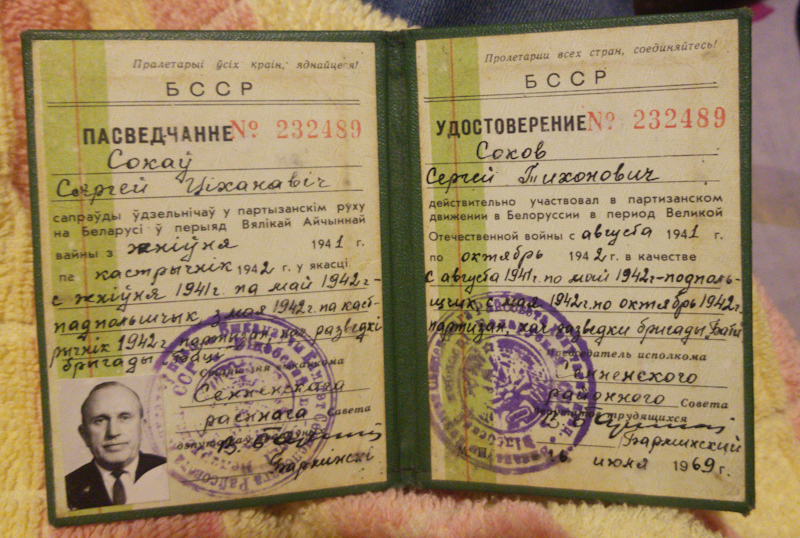 Пралетарыі ўсіх краін, яднайцеся!
БССР
ПАСВЕДЧАННЕ № 232489
Сокаў
Сяргей Ціханавіч
сапраўды ўдзельнічаў у партызанскім руху
на Беларусі ў перыяд Вялікай Айчыннай
вайны з жніўня 1941 г.
па кастрычнік 1942 г. у якасці
с жніўня 1941г. па май 1942г-
падпольшчык, з мая 1942г. па каст-
рычнік 1942г. партызан, нач. разведкі
брыгады Баці
Сенненскага
раённага Савета
Баркінскі
Пролетарии всех стран, соединяйтесь!
БССР
УДОСТОВЕРЕНИЕ № 232489
Соков
Сергей Тихонович
действительно участвовал в партизанском
движении в Белоруссии в период Великой
Отечественной войны с августа 1941 г.
по октябрь 1942 г. в качестве
с августа 1941г. по май 1942г-подполь-
щик, с мая 1942г. по октябрь 1942г.
партизан, нач. разведки бригады Бати
Председатель исполкома
Сенненского
районного Совета
депутатов трудящихся
Баркинский
16 июня 1969 г.